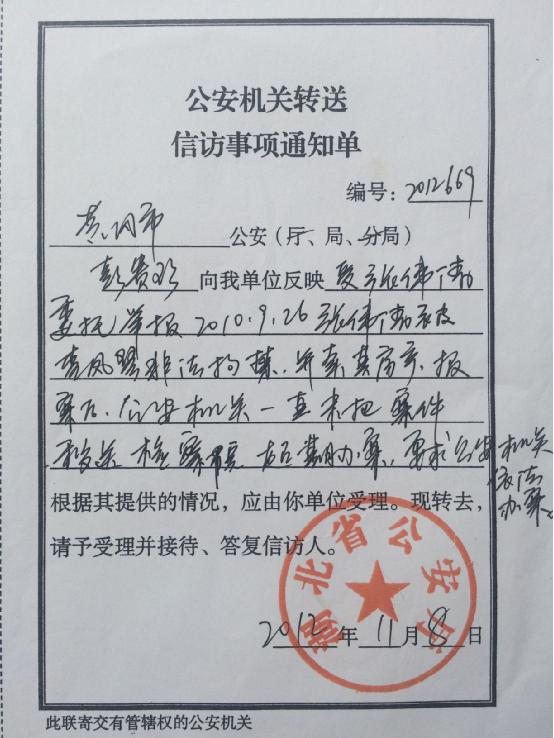 公安机关转送
信访事项通知单
编号：2012669
黄冈市 公安（厅、局、分局）
彭贵珍 向我单位反映 受张伟
委托举报2010.9.26张伟
非法拘禁、并 其房 、报
案后、公安机关一直未把案件
移送检察 办案、要求公安机关
依法
办案。
根据其提供的情况，应由你单位受理。现转去，
请予受理并接待、答复信访人。
湖北省公安厅
2012年11月8日
此联寄交有管辖权的公安机关